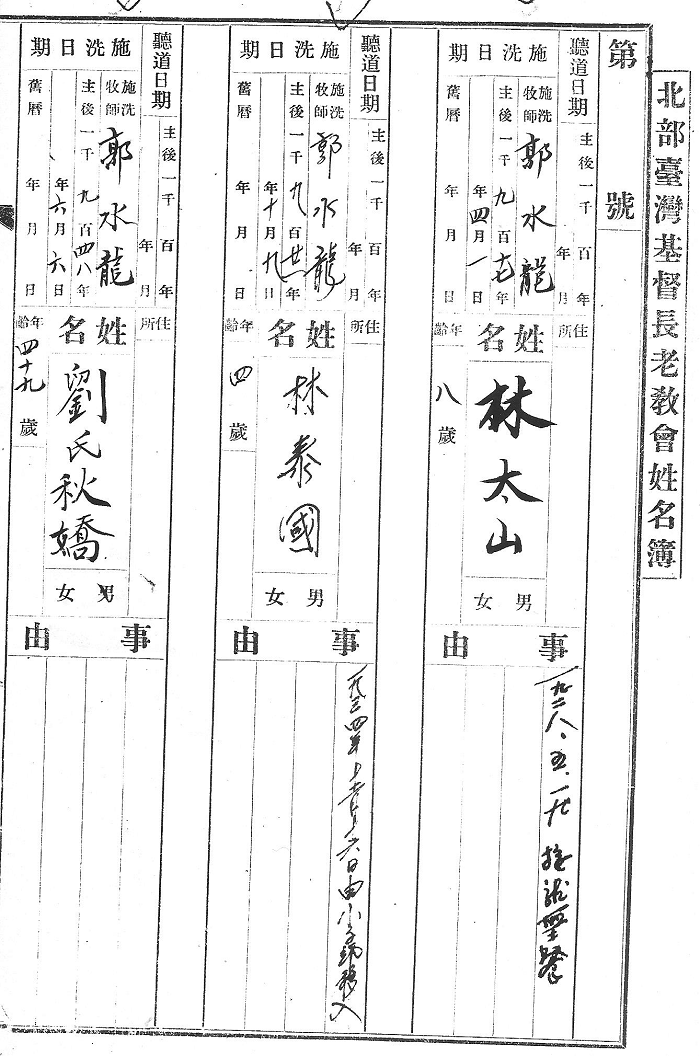 北部臺灣基督長老教會姓名簿
第 號
聽道日期 主後一千 百 年 年 月
施洗日期
施洗牧師 郭水龍
主後一千九百十七年 年四月一日
舊曆 年 月 日
住所
姓名 林太山
年齡 八歲
男 女
事由
一九二八·五·二七 接 聖餐
聽道日期 主後一千 百 年 年 月
施洗日期
施洗牧師 郭水龍
主後一千九百廿年 年十月九日
舊曆 年 月 日
住所
姓名 林泰國
年齡 四歲
男 女
事由
一九三四年 月 六日由小 移入
聽道日期 主後一千 百 年 年 月
施洗日期
施洗牧師 郭水龍
主後一千九百四八年 年六月六日
舊曆 年 月 日
住所
姓名 劉氏秋嬌
年齡 四十九歲
男 女
事由